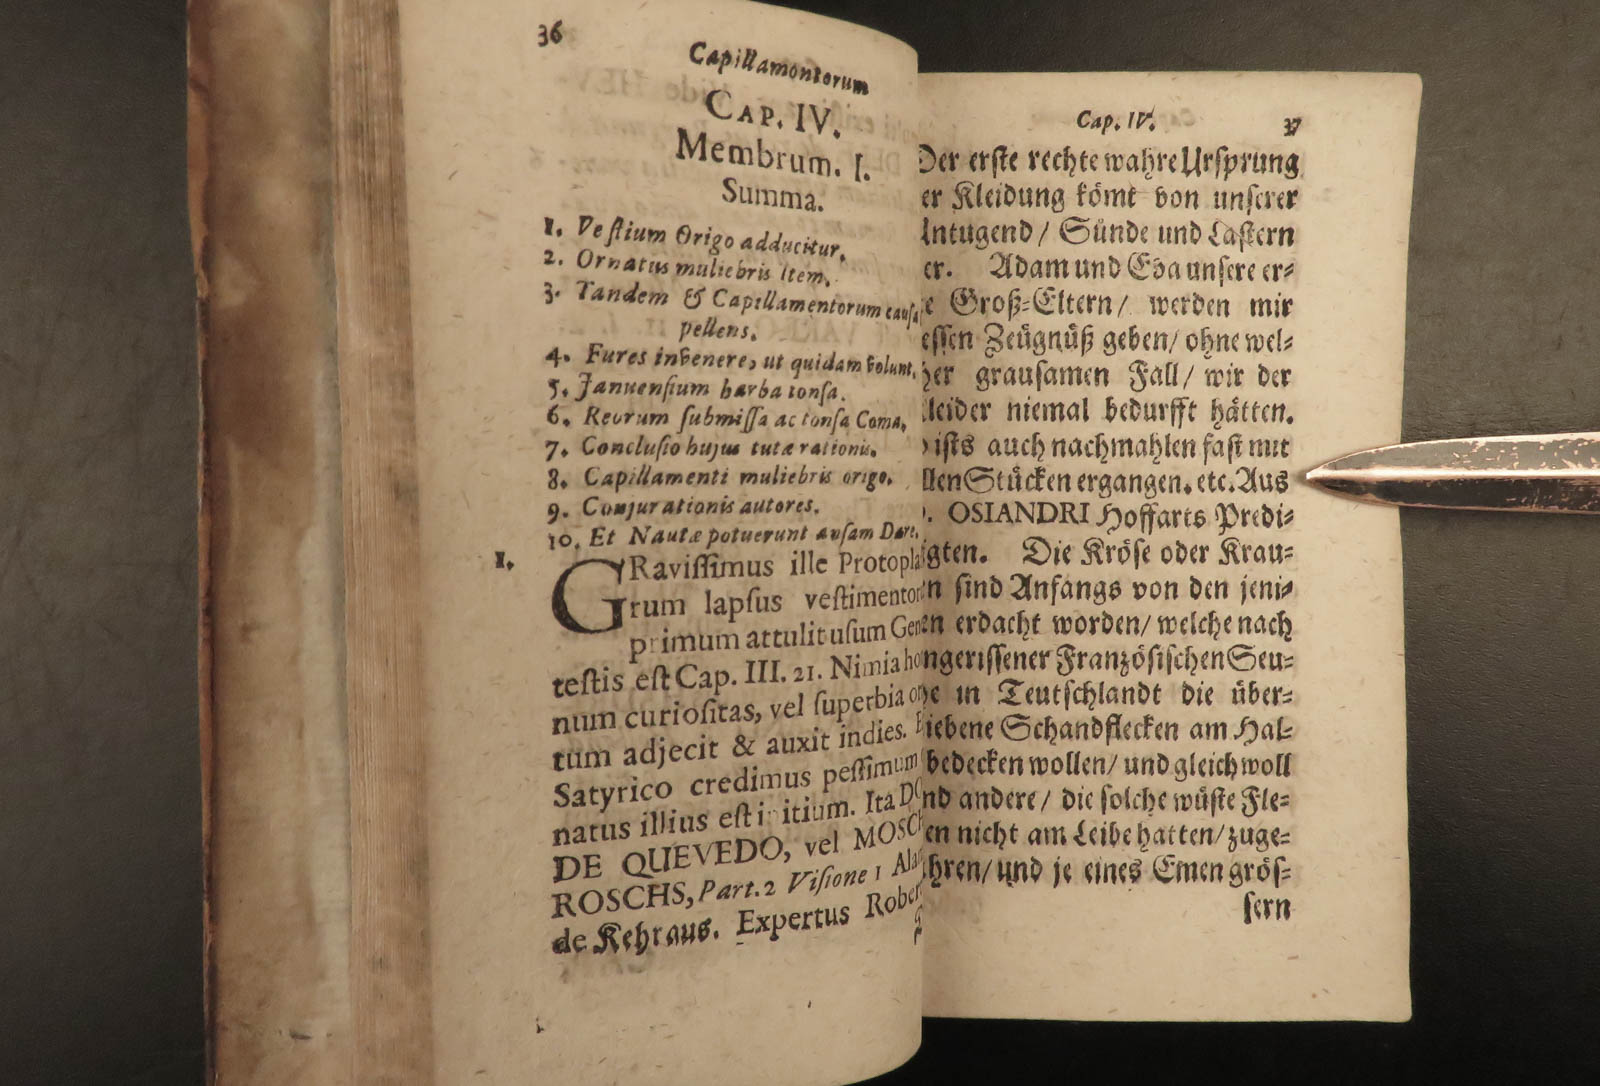 36
Capillamentorum
CAP. IV.
Membrum. I.
Summa.
1. Veſtium Origo adducitur.
2. Ornatus muliebris item.
3. Tandem & Capillamentorum cauſa
pellens.
4. Fures invenere, ut quidam volunt.
5. Januenſium barba tonſa.
6. Reorum ſubmiſſa ac tonſa Coma.
7. Concluſio hujus tutæ rationis.
8. Capillamenti muliebris origo.
9. Conjurationis autores.
10. Et Nautæ potuerunt auſam Dare.
1. GRaviſſimus ille Protopla
rum lapſus veſtimentor
primum attulit uſum Gen
teſtis eſt Cap. III. 21. Nimia ho
num curioſitas, vel ſuperbia or
tum adjecit & auxit indies.
Satyrico credimus peſſimum
natus illius eſt initium. Ita DO
DE QUEVEDO, vel MOSCH
ROSCHS, Part. 2 Viſione 1 Ala
de Kehraus. Expertus Rober
Cap. IV. 37
Der erſte rechte wahre Urſprung
er Kleidung kömt von unſerer
Untugend/ Sünde und Laſtern
er. Adam und Eva unſere er-
e Groß-Eltern/ werden mir
eſſen Zeügnüß geben/ ohne wel-
her grauſamen Fall/ wir der
leider niemal bedurfft hätten.
o iſts auch nachmahlen faſt mit
llen Stücken ergangen. etc. Aus
D. OSIANDRI Hoffarts Predi-
gten. Die Kröſe oder Krau-
n ſind Anfangs von den jeni-
en erdacht worden/ welche nach
ngeriſſener Franzöſiſchen Seu-
he in Teutſchlandt die über-
iebene Schandflecken am Hal-
bedecken wollen/ und gleichwoll
nd andere/ die ſolche wüſte Fle-
en nicht am Leibe hatten/ zuge-
hren/ und je eines Einen gröſ-
ſern